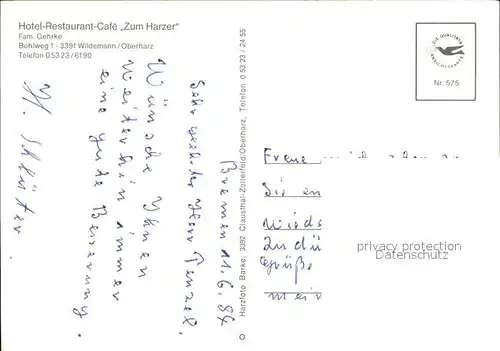 Hotel-Restaurant-Café „Zum Harzer"
Fam. Gehrke
Bohlweg 1 - 3391 Wildemann/Oberharz
Telefon 0 53 23 / 6190
DIE QUALITÄTS
ANSICHTSKARTE
Nr. 575
Harzfoto Barke, 3392 Clausthal-Zellerfeld/Oberharz, Telefon 0 53 23 / 24 55
Bremen 11.6.84
Sehr geehrter Herr Penzel,
Wünsche Ihnen
weiterhin immer
eine gute Besserung.
H. Schlüter.
Freue
Sie en
wieds
zu dü
Grüße
privacy protection
Datenschutz